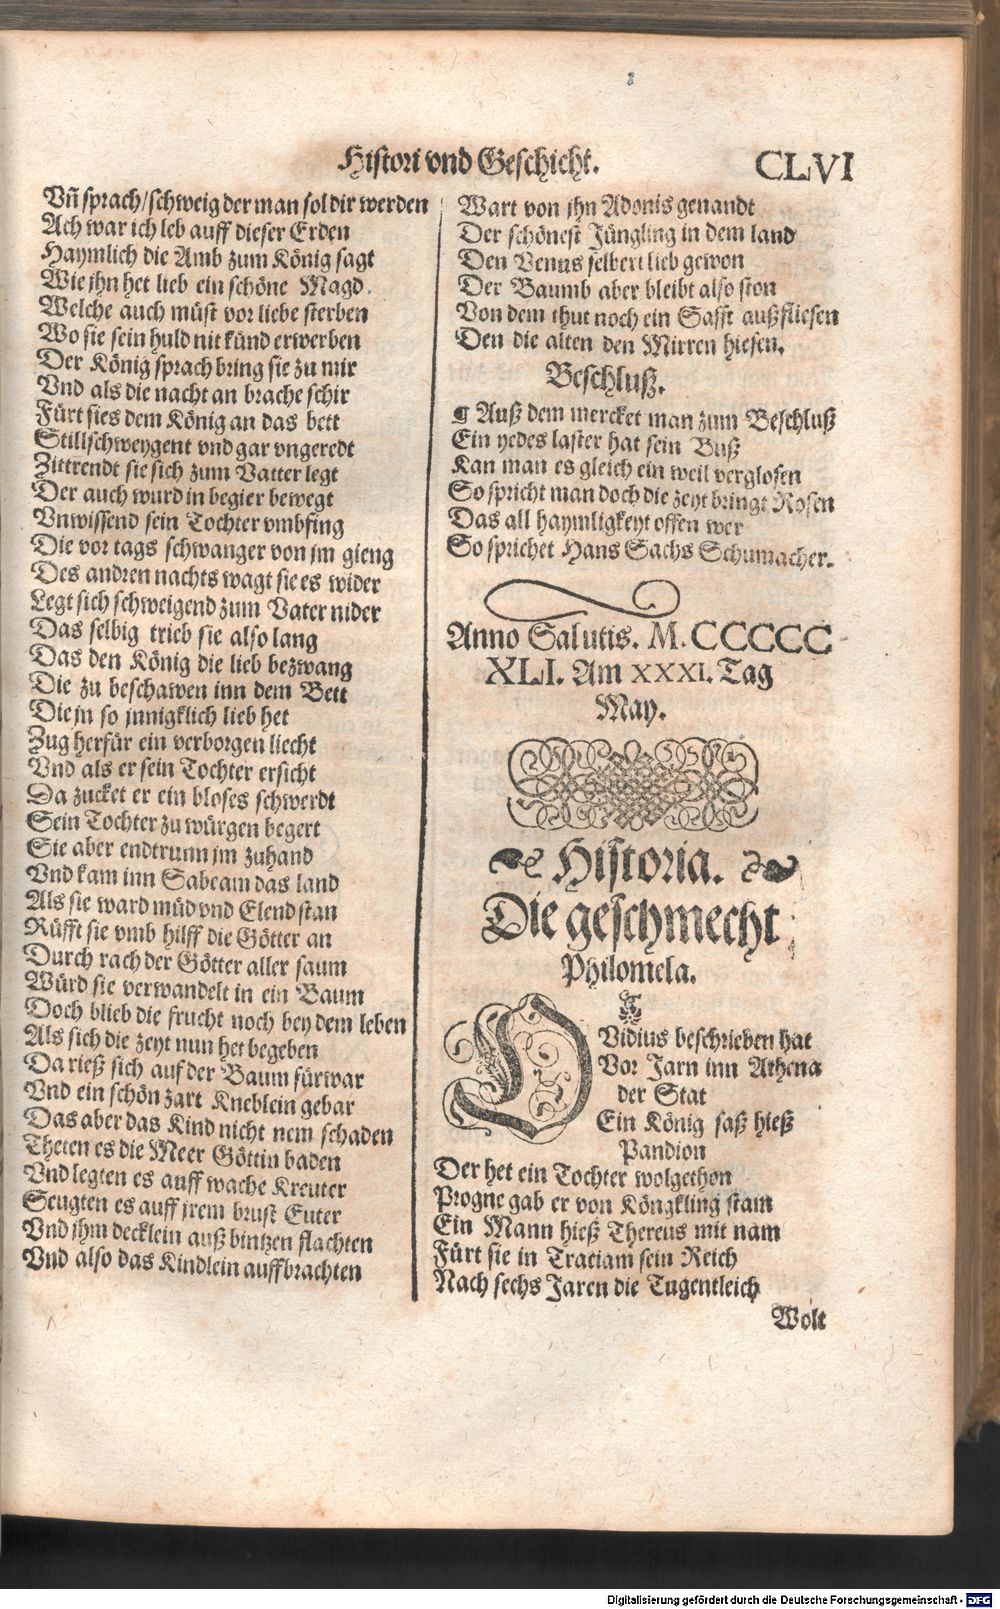 Histori vnd Geschicht.
CLVI
Vñ sprach/schweig der man sol dir werden
Ach war ich leb auff dieser Erden
Haymlich die Amb zum König sagt
Wie jhn het lieb ein schöne Magd.
Welche auch müst vor liebe sterben
Wo sie sein huld nit künd erwerben
Der König sprach bring sie zu mir
Vnd als die nacht an brache schir
Fürt sies dem König an das bett
Stillschweygent vnd gar vngeredt
Zittrendt sie sich zum Vatter legt
Der auch wurd in begier bewegt
Vnwissend sein Tochter vmbfing
Die vor tags schwanger von jm gieng
Des andren nachts wagt sie es wider
Legt sich schweigend zum Vater nider
Das selbig trieb sie also lang
Das den König die lieb bezwang
Die zu beschawen inn dem Bett
Die jn so jnnigklich lieb het
Zug herfür ein verborgen liecht
Vnd als er sein Tochter ersicht
Da zucket er ein bloses schwerdt
Sein Tochter zu würgen begert
Sie aber endtrunn jm zuhand
Vnd kam inn Sabeam das land
Als sie ward müd vnd Elend stan
Rüfft sie vmb hilff die Götter an
Durch rach der Götter aller saum
Würd sie verwandelt in ein Baum
Doch blieb die frucht noch bey dem leben
Als sich die zeyt nun het begeben
Da rieß sich auf der Baum fürwar
Vnd ein schön zart Kneblein gebar
Das aber das Kind nicht nem schaden
Theten es die Meer Göttin baden
Vnd legten es auff wache Kreuter
Seugten es auff jrem brust Euter
Vnd jhm decklein auß bintzen flachten
Vnd also das Kindlein auffbrachten
Wart von jhn Adonis genandt
Der schönest Jüngling in dem land
Den Venus selbert lieb gewon
Der Baumb aber bleibt also ston
Von dem thut noch ein Safft außfliesen
Den die alten den Mirren hiesen.
Beschluß.
¶ Auß dem mercket man zum Beschluß
Ein yedes laster hat sein Buß
Kan man es gleich ein weil verglosen
So spricht man doch die zeyt bringt Rosen
Das all haymligkeyt offen wer
So sprichet Hans Sachs Schumacher.
Anno Salutis. M. CCCCC
XLI. Am XXXI. Tag
May.
Historia.
Die geschmecht
Philomela.
OVidius beschrieben hat
Vor Jarn inn Athena
der Stat
Ein König saß hieß
Pandion
Der het ein Tochter wolgethon
Progne gab er von Köngkling stam
Ein Mann hieß Thereus mit nam
Fürt sie in Traciam sein Reich
Nach sechs Jaren die Tugentleich
Wolt
Digitalisierung gefördert durch die Deutsche Forschungsgemeinschaft - DFG